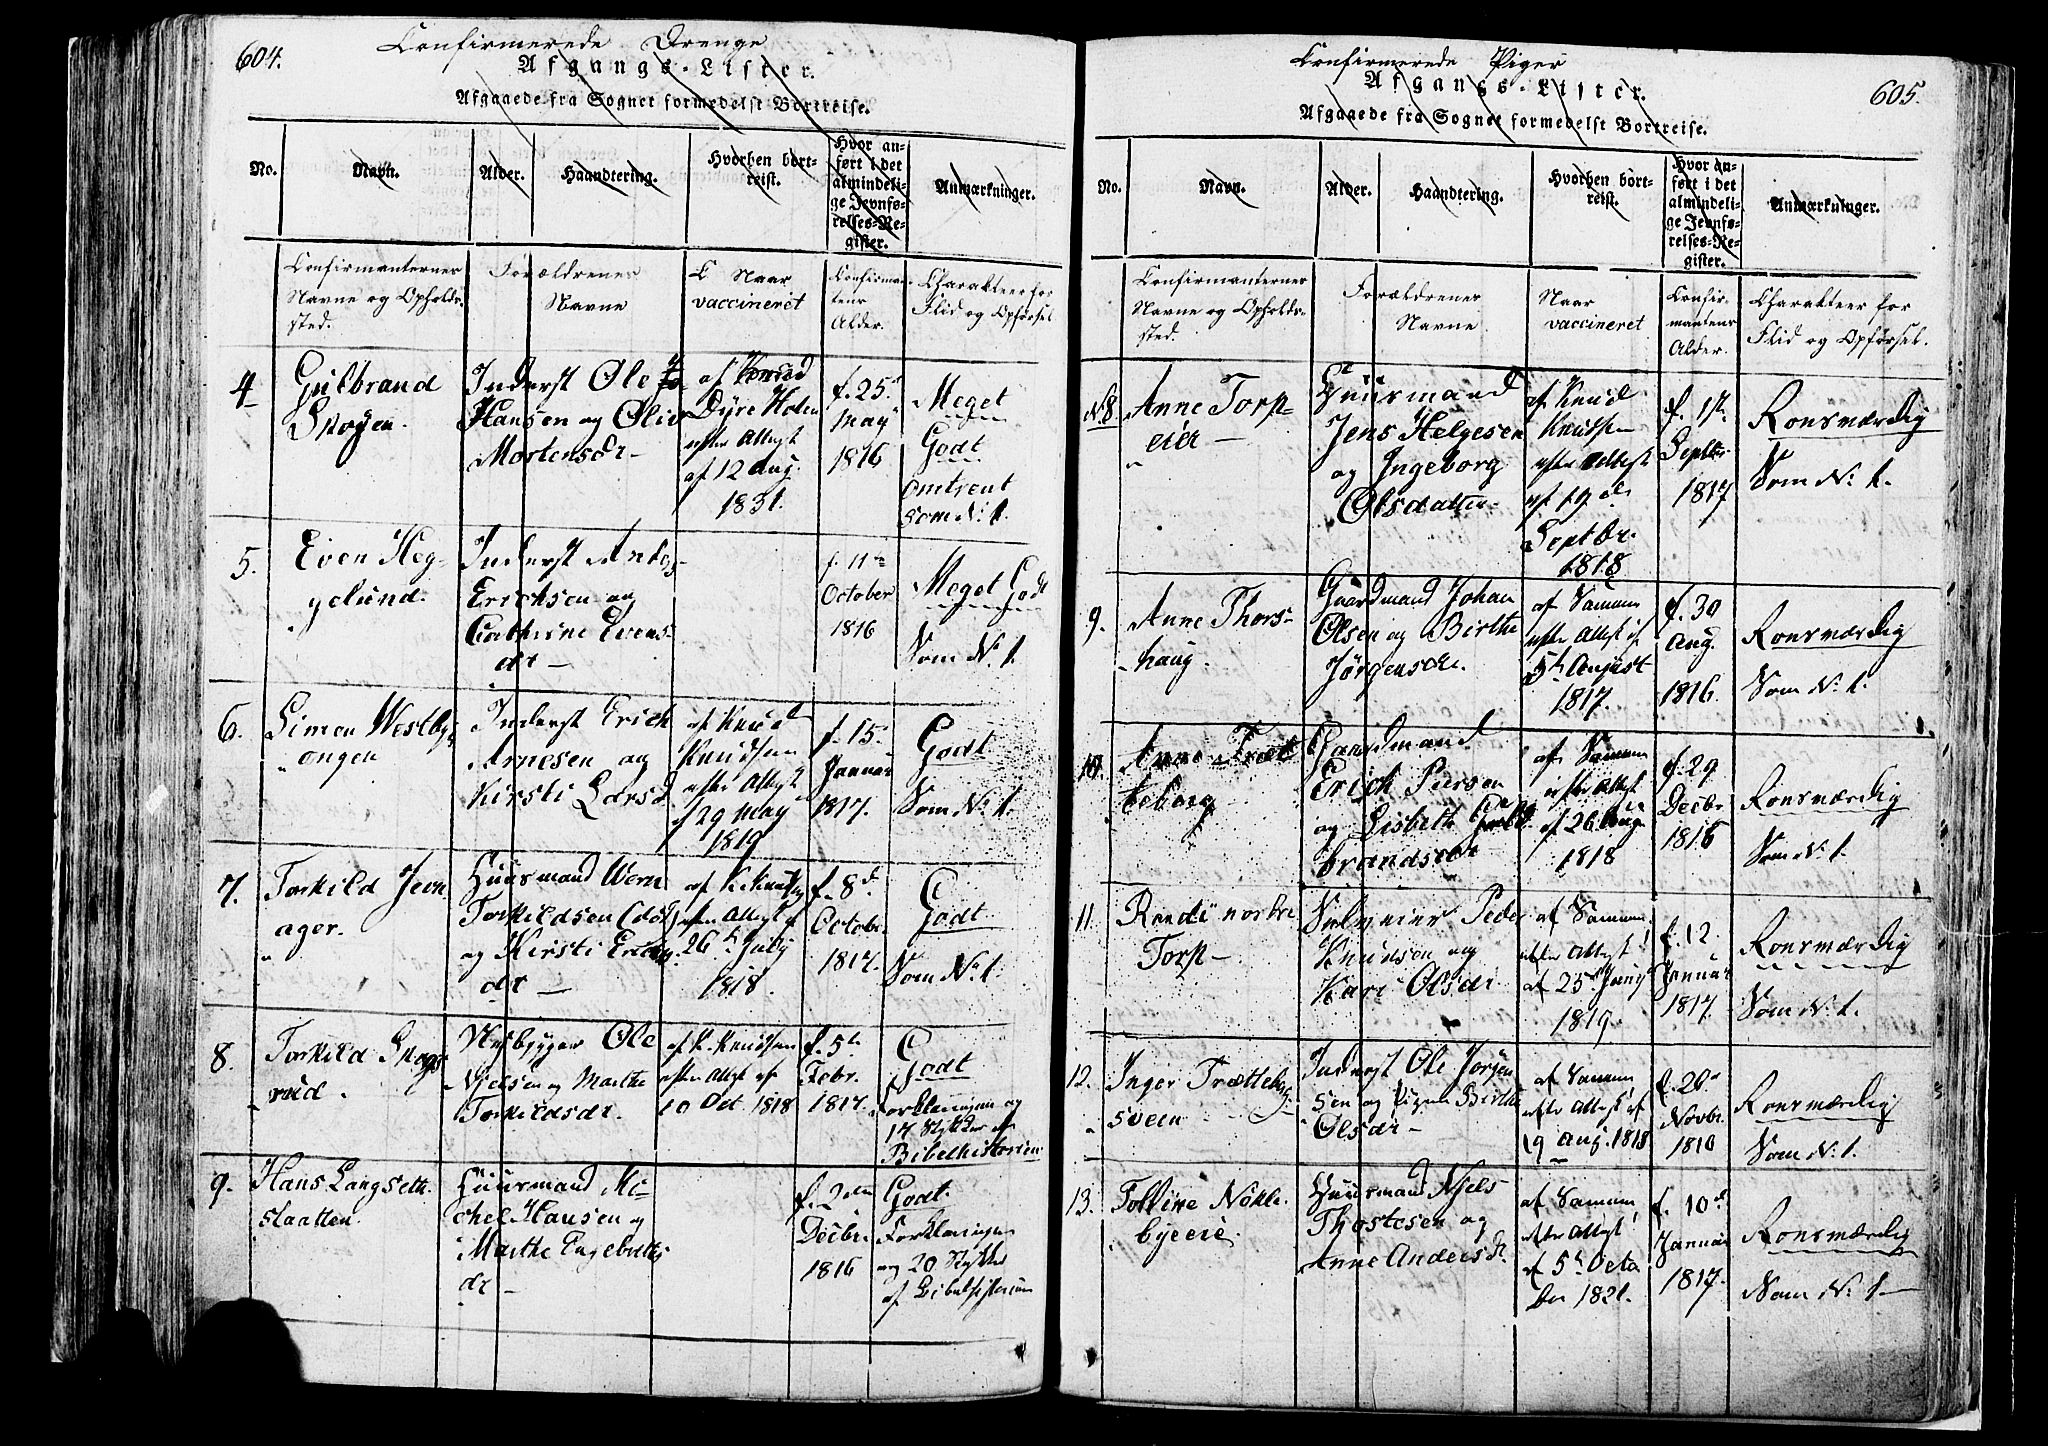 604.
Confirmerede Drenge
Afgangs-Lister.
Afgaaede fra Sognet formedelst Bortreise.
No.
Navn.
Alder.
Haandtering.
Hvorhen bort-
reist.
Hvor an-
ført i det
almindeli-
ge Jevnfø-
relses-Re-
gister.
Anmærkninger.
Confirmanternes
Navne og Opholds-
sted.
Forældrenes
Navne
Naar
vaccineret
Confirman-
tens
Alder.
Charakteer for
Flid og Opførsel
4
Gulbrand
Skoyen.
Inderst Ole
Hansen og Oliv
Mortensdr-
af
Dyre Holen
efter Attest
af 12 Aug.
1831.
f. 25
May
1816
Meget
Godt
omtrent
som No. 1.
5.
Even Heg-
gelund.
Inderst Anders
Erichsen og
Cathrine Evens-
dr-
f. 11te
October
1816
Meget Godt
Som No. 1.
6.
Simen Westby
ongen
Inderst Erich
Arnesen og
Kirsti Larsd
af Knud
Knudsen
efter Attest
af 29 May
1819
f. 15
Januar
1817.
Godt
Som No. 1.
7.
Torkild Jevn
ager.
Huusmand
Torkildsen
og Kirsti
dr-
af K. Knudsen
efter Attest af
26 July
1818.
f. 8d.
October
1817.
Godt
Som No 1.
8.
Torkild Skogs
rud.
Nybygger Ole
Nielsen og Marthe
Torkildsdr.
af K. Knudsen
efter Attest af
10 Oct 1818
f. 5te
Febr.
1817.
Godt
Forklaringen og
17 Stykker af
Bibelhistorien
9.
Hans Langseth
slaatten.
Huusmand Mi-
chel Hansen og
Marthe Engebrets
dr-
f. 2den
Decbr.
1816
Godt.
Forklaringen
og 20 Stykker
af Bibelhistorien
605.
Confirmerede Piger
Afgangs-Lister.
Afgaaede fra Sognet formedelst Bortreise.
No.
Navn.
Alder.
Haandtering.
Hvorhen bort-
reist.
Hvor an-
ført i det
almindeli-
ge Jevnfø-
relses-Re-
gister.
Anmærkninger.
Confirmanternes
Navne og Opholds-
sted.
Forældrenes
Navne
Naar
vaccineret
Confir-
mantens
Alder.
Charakteer for
Flid og Opførsel.
No 8.
Anne Torp-
eier-
Huusmand
Jens Helgesen
og Ingeborg
Olsdatter-
af Knud
Knudsen
efter Attest
af 19de
Septbr.
1818
f. 1ste
Septbr.
1817
Roesværdig
Som No. 1.
9.
Anne Thors-
haug.
Gaardmand Johan
Olsen og Birthe
Jørgensdr.
af Samme
efter Attest af
5te August
1817.
f. 30
Aug.
1816.
Roesværdig
Som No. 1.
10.
Anne Træt
teborg
Gaardmand
Erich Persen
og Lisbeth Gul-
brandsdr
af Samme
efter Attest
af 26 Aug.
1818
f. 29
Decbr
1816
Roesværdig
Som No. 1.
11.
Randi nordre
Torp-
Selveier Peder
Knudsen og
Kari Olsdr
af Samme
efter Attest
af 25 Juny
1819.
f. 12
Januar
1817.
Roesværdig
Som No. 1.
12.
Inger Trætteberg
sveen
Inderst Ole Jørgen
sen og Pigen Birthe
Olsdr-
af Samme
efter Attest af
19 Aug. 1818
f. 20
Novbr.
1810
Roesværdig
Som No. 1.
13.
Tolline Nökle-
byeeie.
Huusmand Njels
Thostesen og
Anne Andersdr.
af Samme
efter Attest
af 5te Octo
ber 1821.
f. 10d.
Januar
1817.
Roesværdig
Som No. 1-